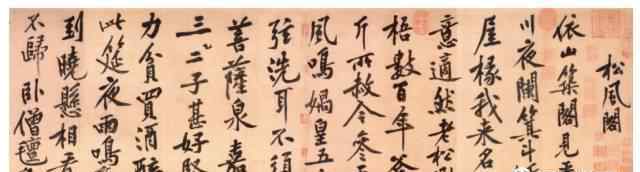 松風閣
依山築閣見
川夜闌箕斗
屋椽我来名
意適然老松
梧數百年斧
斤所赦今參
風鳴媧皇五
弦洗耳不須
菩薩泉嘉
三二子甚好賢
力貧買酒醉
此筵夜雨鳴
到曉懸相看
不歸卧僧氊